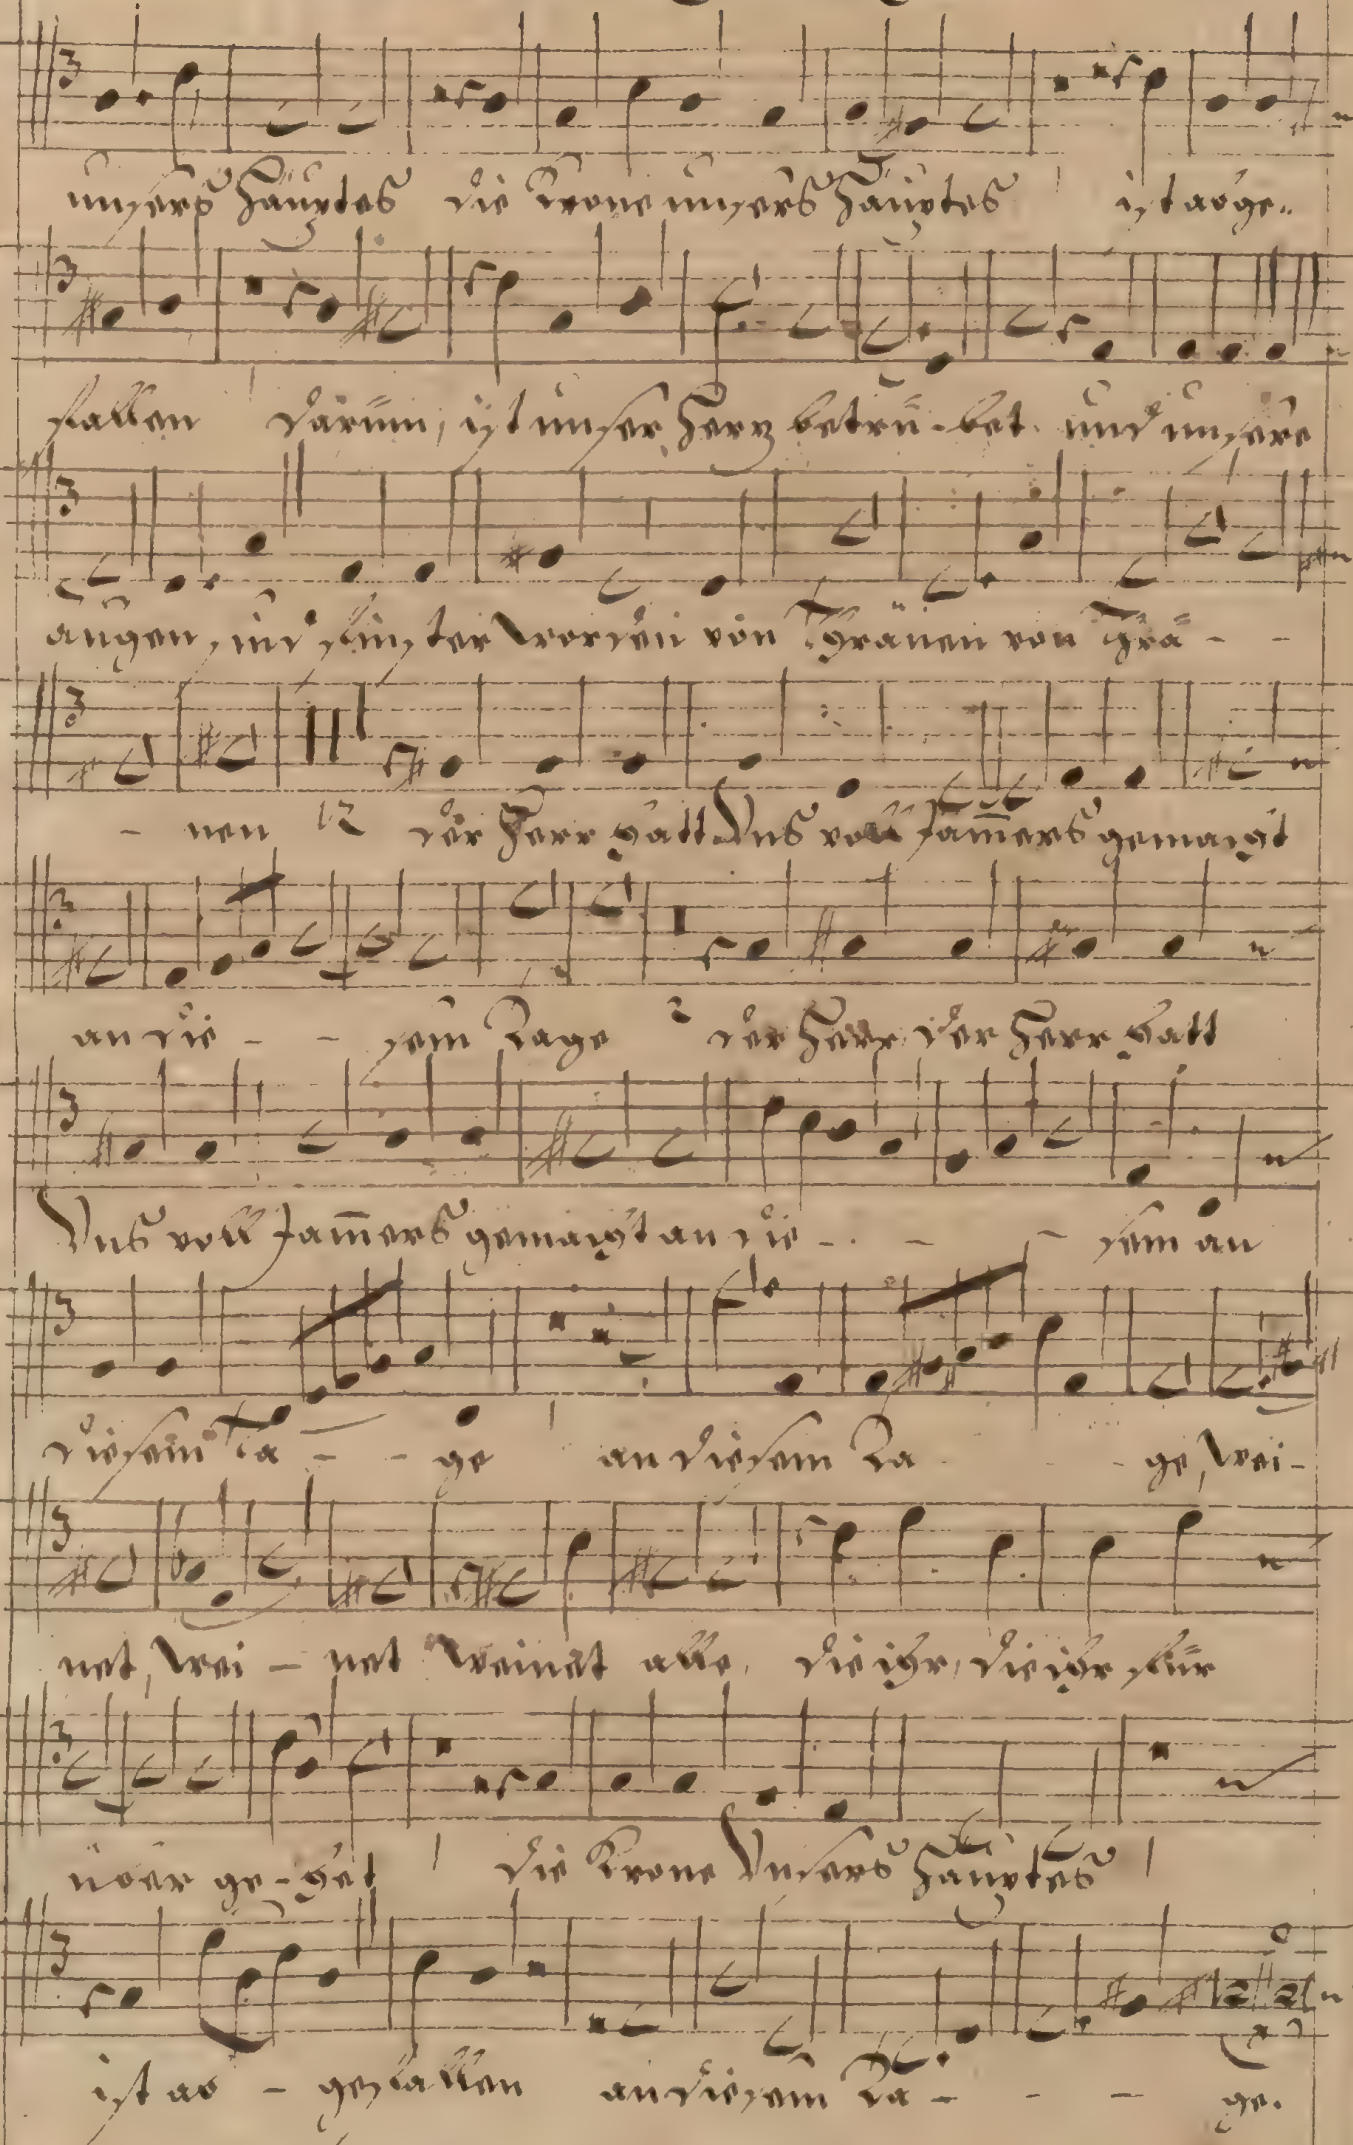 unsers Haüptes die Krone unsers Haüptes ist abge-
fallen darüm, ist unser Herz betrü-bet. und unsere
augen sind finster worden von Thränen von Thrä - -
- nen 12 der Herr hatt Uns voll Jam̄ers gemacht
an die - - sem Tage 2 der Herr, der Herr hatt
Uns voll Jam̄ers gemacht an die - - - sem an
diesem Ta - - ge an diesem Ta - ge, wei-
net, wei - net weinet alle, die ihr, die ihr für
über ge-het die Krone Unsers Haüptes
ist ab - gefallen an diesem Ta - - - ge.